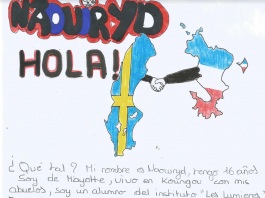 NAOUIRYD
HOLA!
¿Qué tal? Mi nombre es Naouiryd, tengo 16 años
Soy de Mayotte, vivo en Koungou con mis
abuelos, soy un alumno del instituto "Les Lumières"